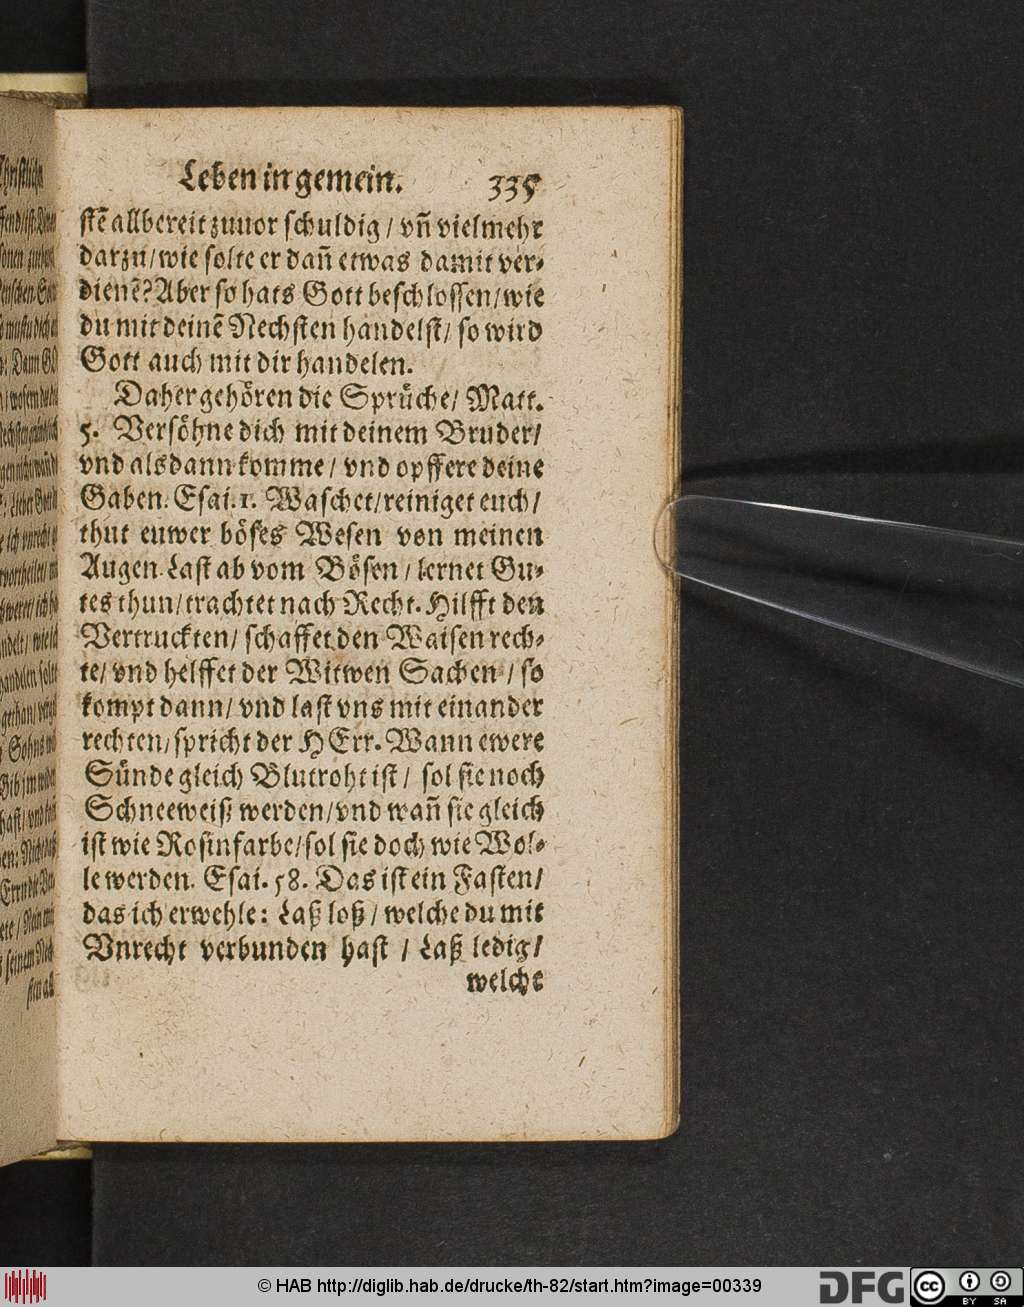 Leben in gemein. 335
stẽ allbereit zuuor schuldig / vñ vielmehr
darzu / wie solte er dañ etwas damit ver-
dienẽ? Aber so hats Gott beschlossen / wie
du mit deinẽ Nechsten handelst / so wird
Gott auch mit dir handelen.
Daher gehören die Sprüche / Matt.
5. Versöhne dich mit deinem Bruder /
vnd als dann komme / vnd opffere deine
Gaben. Esai. 1. Waschet / reiniget euch /
thut euwer böses Wesen von meinen
Augen. Last ab vom Bösen / lernet Gu-
tes thun / trachtet nach Recht. Hilfft den
Vertruckten / schaffet den Waisen rech-
te / vnd helffet der Witwen Sachen / so
kompt dann / vnd last vns mit einander
rechten / spricht der HErr. Wann ewere
Sünde gleich Blutroht ist / sol sie noch
Schneeweiß werden / vnd wañ sie gleich
ist wie Rosinfarbe / sol sie doch wie Wol-
le werden. Esai. 58. Das ist ein Fasten /
das ich erwehle: Laß loß / welche du mit
Vnrecht verbunden hast / Laß ledig /
welche
© HAB http://diglib.hab.de/drucke/th-82/start.htm?image=00339
DFG
cc BY SA